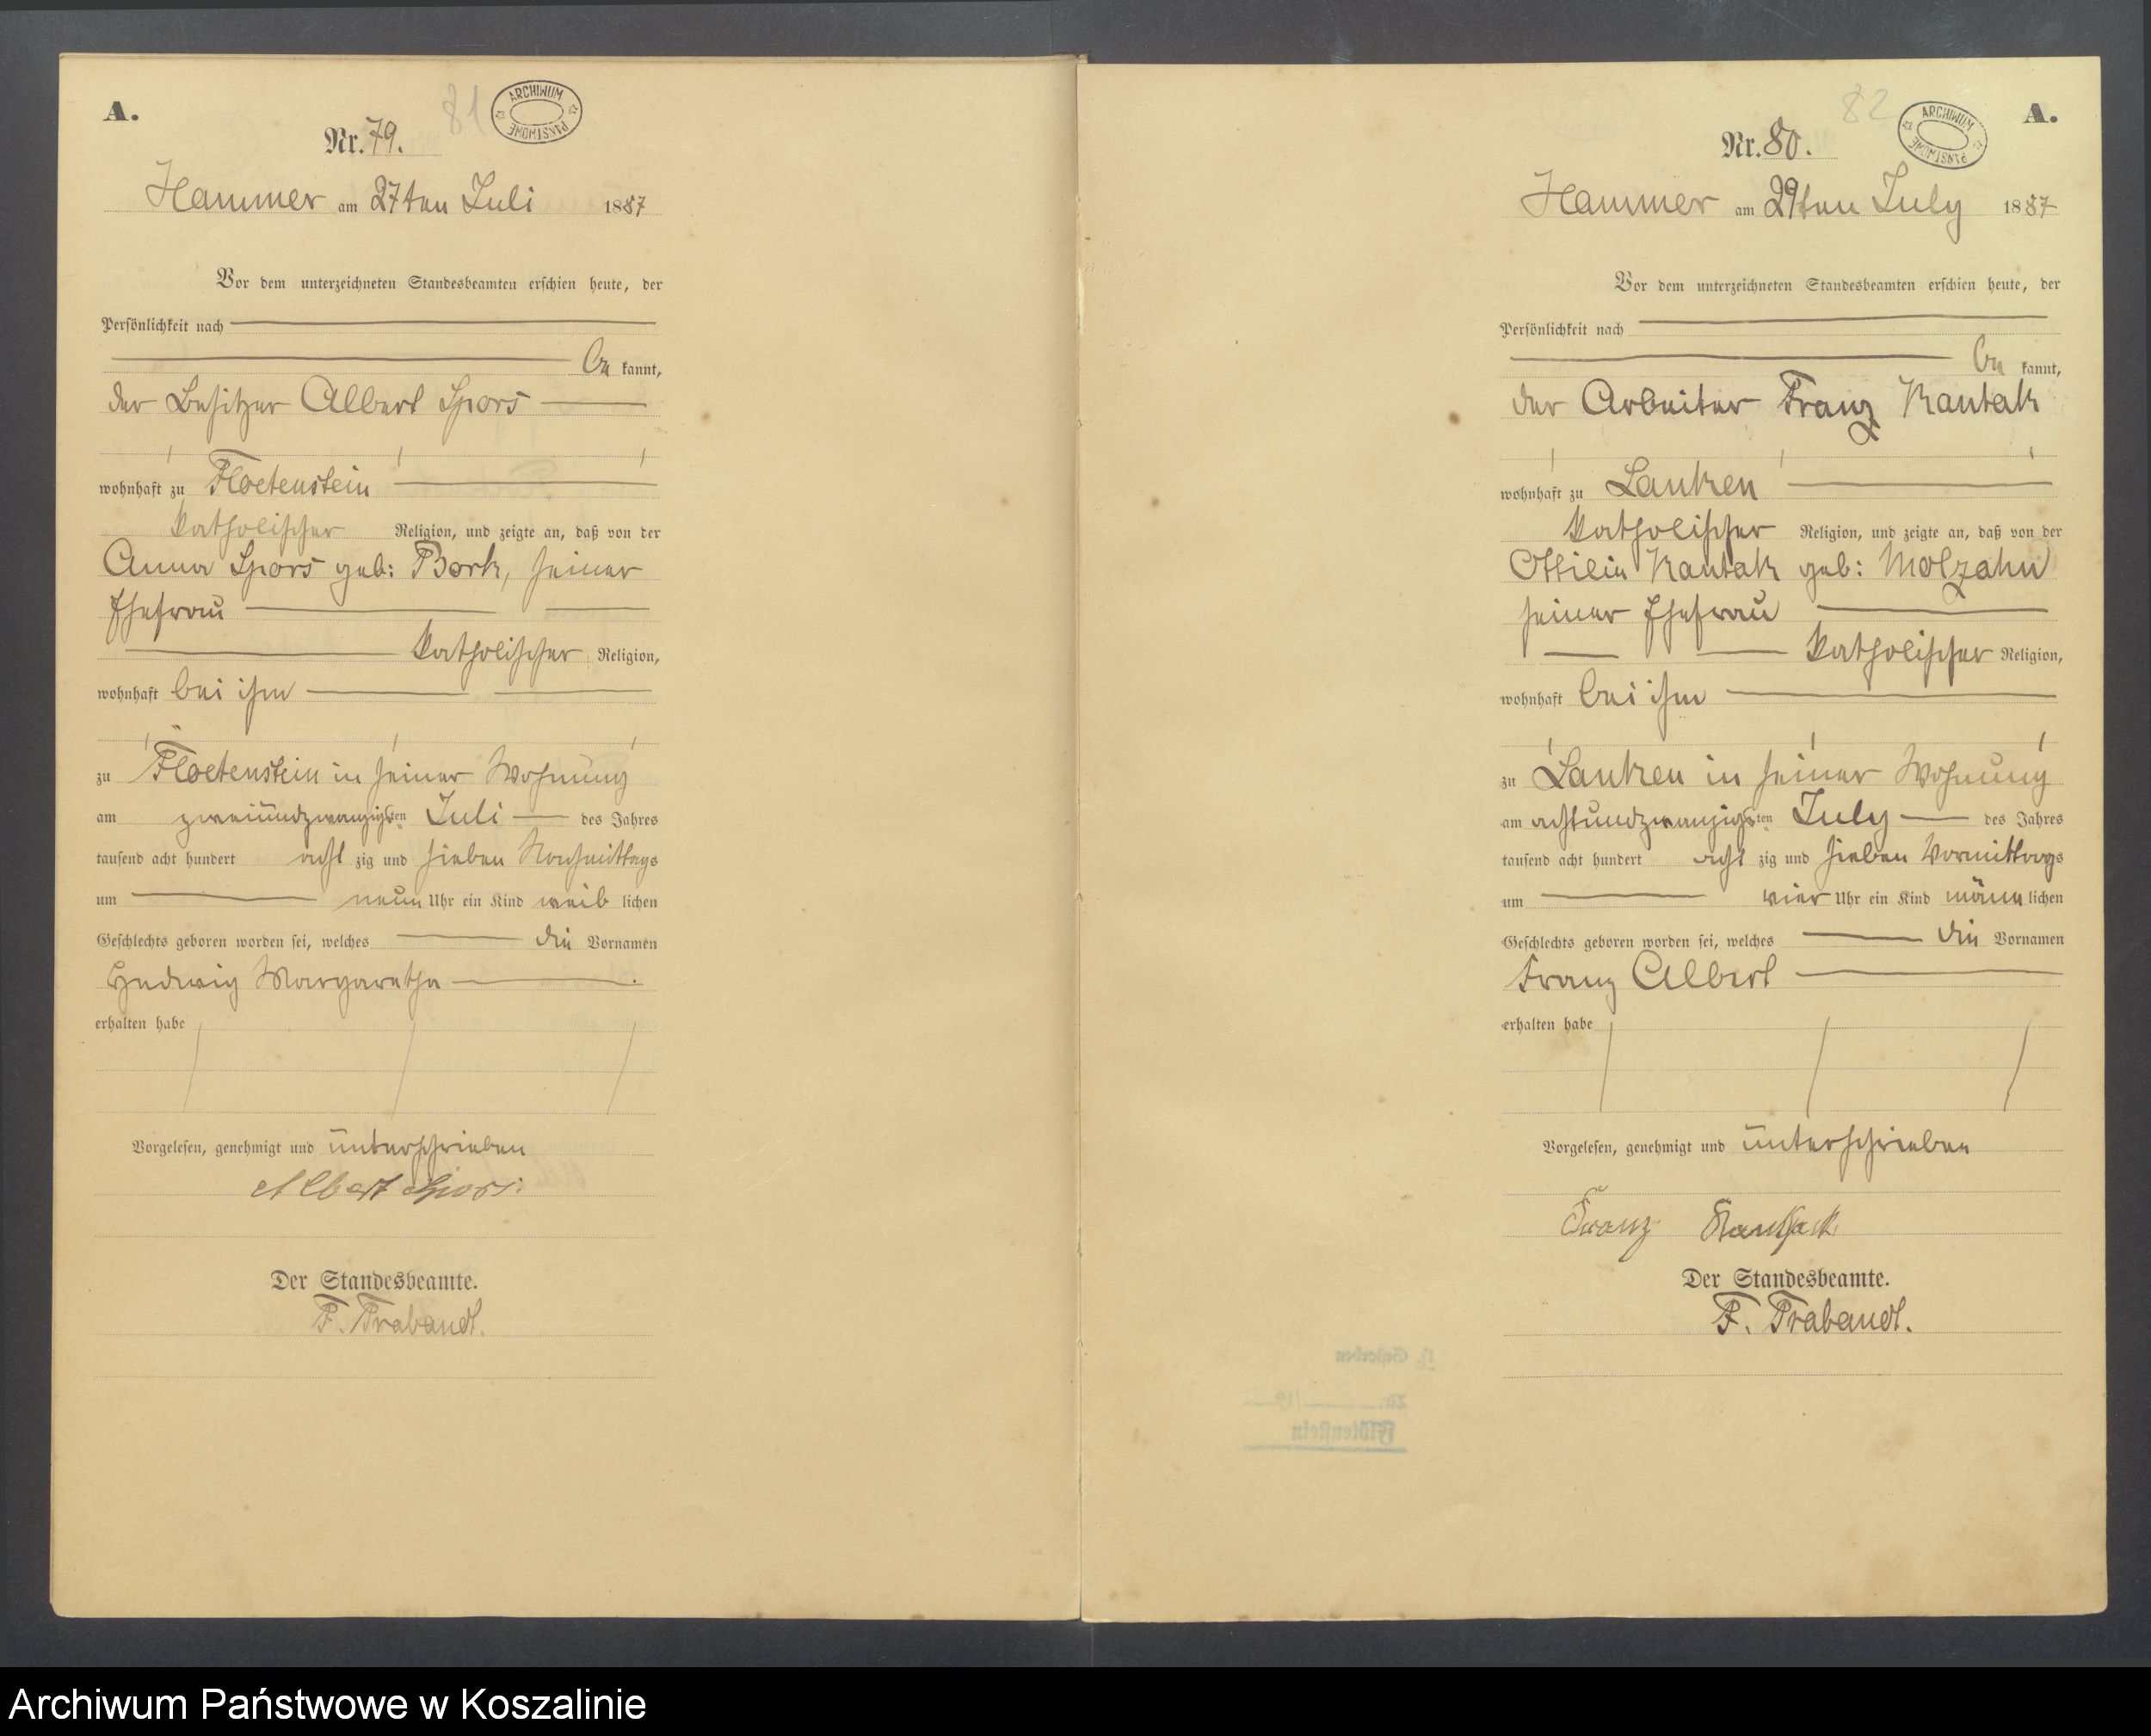 A.
81
ARCHIWUM PAŃSTWOWE
Nr. 79.
Hammer am 27ten Juli 1887
Vor dem unterzeichneten Standesbeamten erschien heute, der
Persönlichkeit nach
be kannt,
der Besitzer Albert Spors
wohnhaft zu Floetenstein
katholischer Religion, und zeigte an, daß von der
Anna Spors geb: Bork, seiner
Ehefrau
katholischer Religion,
wohnhaft bei ihm
zu Floetenstein in seiner Wohnung
am zweiundzwanzigsten Juli des Jahres
tausend acht hundert acht zig und sieben Nachmittags
um neun Uhr ein Kind weib lichen
Geschlechts geboren worden sei, welches die Vornamen
Hedwig Margaretha .
erhalten habe
Vorgelesen, genehmigt und unterschrieben
Albert Spors.
Der Standesbeamte.
F. Trabandt.
82
ARCHIWUM PAŃSTWOWE
A.
Nr. 80.
Hammer am 29ten July 1887
Vor dem unterzeichneten Standesbeamten erschien heute, der
Persönlichkeit nach
be kannt,
der Arbeiter Franz Kantak
wohnhaft zu Lanken
katholischer Religion, und zeigte an, daß von der
Ottilie Kantak geb: Molzahn
seiner Ehefrau
katholischer Religion,
wohnhaft bei ihm
zu Lanken in seiner Wohnung
am achtundzwanzigsten July des Jahres
tausend acht hundert acht zig und sieben Vormittags
um vier Uhr ein Kind männ lichen
Geschlechts geboren worden sei, welches die Vornamen
Franz Albert
erhalten habe
Vorgelesen, genehmigt und unterschrieben
Franz Kantack
Der Standesbeamte.
F. Trabandt.
Gestorben
Flötenstein
Archiwum Państwowe w Koszalinie